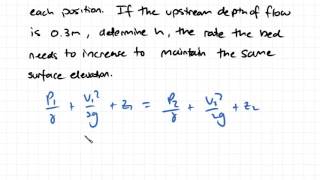 each position. If the upstream depth of flow
is 0.3m, determine h, the rate the bed
needs to increase to maintain the same
surface elevation.
P₁/γ + V₁²/2g + z₁ = P₂/γ + V₂²/2g + z₂